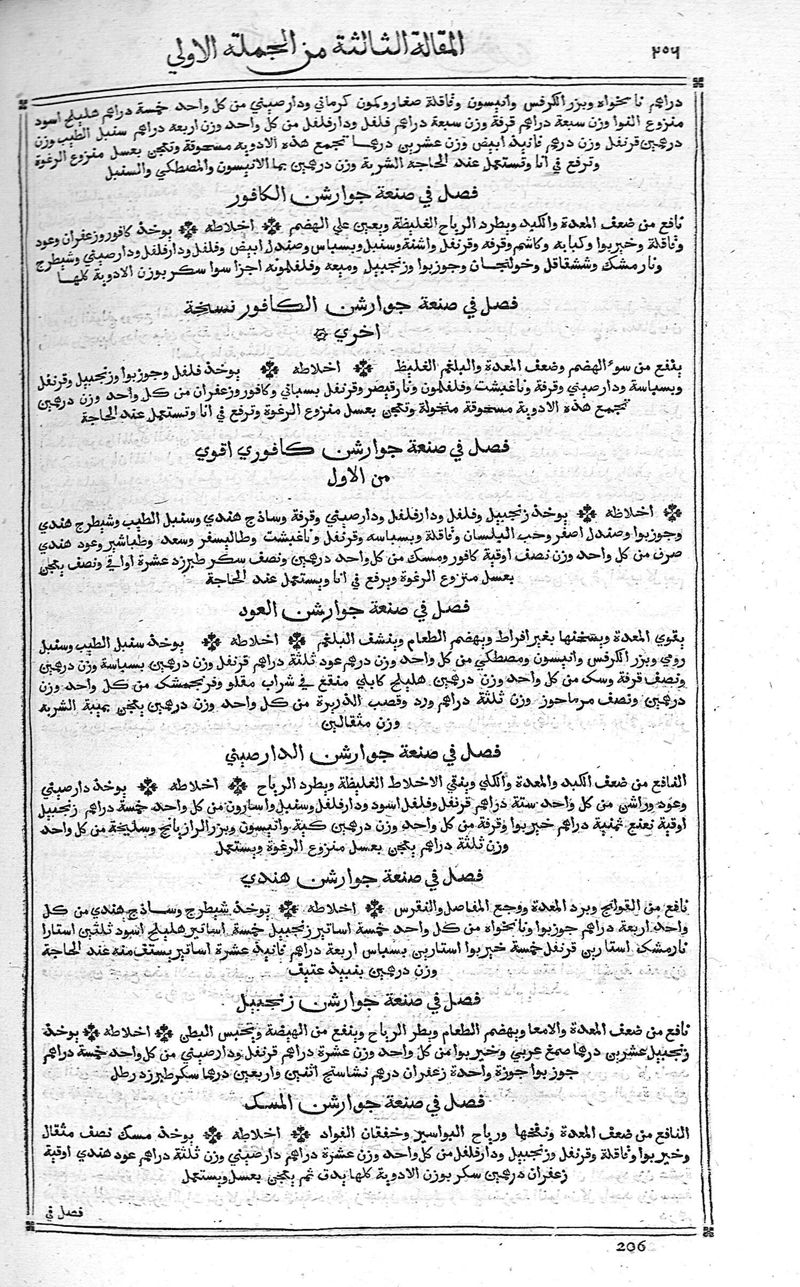 ٢٠٦
المقالة الثالثة من الجملة الاولي
دراهم نانخواه وبزر الكرفس وانيسون وقاقلة صغار وكمون كرماني ودارصيني من كل واحد خمسة دراهم هليلج اسود
منزوع النوا وزن سبعة دراهم قرفة وزن سبعة دراهم فلفل ودارفلفل من كل واحد وزن اربعة دراهم سنبل الطيب وزن
درهمين قرنفل وزن درهم نانيذ ابيض وزن عشرين درهما تجمع هذه الادوية مسحوقة وتعجن بعسل منزوع الرغوة
وترفع في انا وتستعمل عند الحاجة الشربة وزن درهمين بما الانيسون والمصطكي والسنبل
فصل في صنعة جوارشن الكافور
نافع من ضعف المعدة والكبد ويطرد الرياح الغليظة ويعين علي الهضم اخلاطه يوخذ كافور وزعفران وعود
وقاقلة وخيربوا وكبابه وكاشم وقرفه وقرنفل واشنة وسنبل وبسباس وصندل ابيض وفلفل ودارفلفل ودارصيني وشيطرج
ونارمشك وششقاقل وخولنجان وجوزبوا وزنجبيل وميعه وفلفلمونه اجزا سوا سكر بوزن الادوية كلها
فصل في صنعة جوارشن الكافور نسخة
اخري
ينفع من سوء الهضم وضعف المعدة والبلغم الغليظ اخلاطه يوخذ فلفل وجوزبوا وزنجبيل وقرنفل
وبسباسة ودارصيني وقرفة وناغبشت وفلفلمون ونارقيصر وقرنفل بستاني وكافور وزعفران من كل واحد وزن درهمين
تجمع هذه الادوية مسحوقة منخولة وتعجن بعسل منزوع الرغوة وترفع في انا وتستعمل عند الحاجة
فصل في صنعة جوارشن كافوري اقوي
من الاول
اخلاطه يوخذ زنجبيل وفلفل ودارفلفل ودارصيني وقرفة وساذج هندي وسنبل الطيب وشيطرج هندي
وجوزبوا وصندل اصفر وحب البلسان وقاقلة وبسباسه وقرنفل وناغبشت وطاليسفر وسعد وطباشير وعود هندي
صرف من كل واحد وزن نصف اوقية كافور ومسك من كل واحد درهمين ونصف سكر طبرزد عشرة اواقي ونصف يعجن
بعسل منزوع الرغوة ويرفع في انا ويستعمل عند الحاجة
فصل في صنعة جوارشن العود
يقوي المعدة ويسخنها بغير افراط ويهضم الطعام وينشف البلغم اخلاطه يوخذ سنبل الطيب وسنبل
رومي وبزر الكرفس وانيسون ومصطكي من كل واحد وزن درهم عود ثلثة دراهم قرنفل وزن درهمين بسباسة وزن درهمين
ونصف قرفة وسك من كل واحد وزن درهمين هليلج كابلي منقع في شراب مقلو وفرنجمشك من كل واحد وزن
درهمين ونصف مرماحوز وزن ثلثة دراهم ورد وقصب الذريرة من كل واحد وزن درهمين يعجن بميبة الشربه
وزن مثقالين
فصل في صنعة جوارشن الدارصيني
النافع من ضعف الكبد والمعدة والكلي وينقي الاخلاط الغليظة ويطرد الرياح اخلاطه يوخذ دارصيني
وعود وراشن من كل واحد ستة دراهم قرنفل وفلفل اسود ودارفلفل وسنبل واسارون من كل واحد خمسة دراهم زنجبيل
اوقية نعنع ثمنية دراهم خيربوا وقرفة من كل واحد وزن درهمين كية وانيسون وبزر الرازيانج وسليخة من كل واحد
وزن ثلثة دراهم يعجن بعسل منزوع الرغوة ويستعمل
فصل في صنعة جوارشن هندي
نافع من القولنج وبرد المعدة ووجع المفاصل والنقرس اخلاطه يوخذ شيطرج وساذج هندي من كل
واحد اربعة دراهم جوزبوا ونانخواه من كل واحد خمسة اساتير زنجبيل خمسة اساتير هليلج اسود ثلثين استارا
نارمشك استارين قرنفل خمسة خيربوا استارين بسباس اربعة دراهم نانيذ عشرة اساتير يستف منه عند الحاجة
وزن درهمين بنبيذ عتيق
فصل في صنعة جوارشن زنجبيل
نافع من ضعف المعدة والامعا ويهضم الطعام ويطر الرياح وينفع من الهيضة ويحبس البطن اخلاطه يوخذ
زنجبيل عشرين درهما صمغ عربي وخيربوا من كل واحد وزن عشرة دراهم قرنفل ودارصيني من كل واحد خمسة دراهم
جوزبوا جوزة واحدة زعفران درهم نشاستج اثنين واربعين درهما سكر طبرزد رطل
فصل في صنعة جوارشن المسك
النافع من ضعف المعدة ونفخها ورياح البواسير وخفقان الفواد اخلاطه يوخذ مسك نصف مثقال
وخيربوا وقاقلة وقرنفل وزنجبيل ودارفلفل من كل واحد وزن عشرة دراهم دارصيني وزن ثلثة دراهم عود هندي اوقية
زعفران درهمين سكر بوزن الادوية كلها يدق ثم يعجن بعسل ويستعمل
فصل في
206